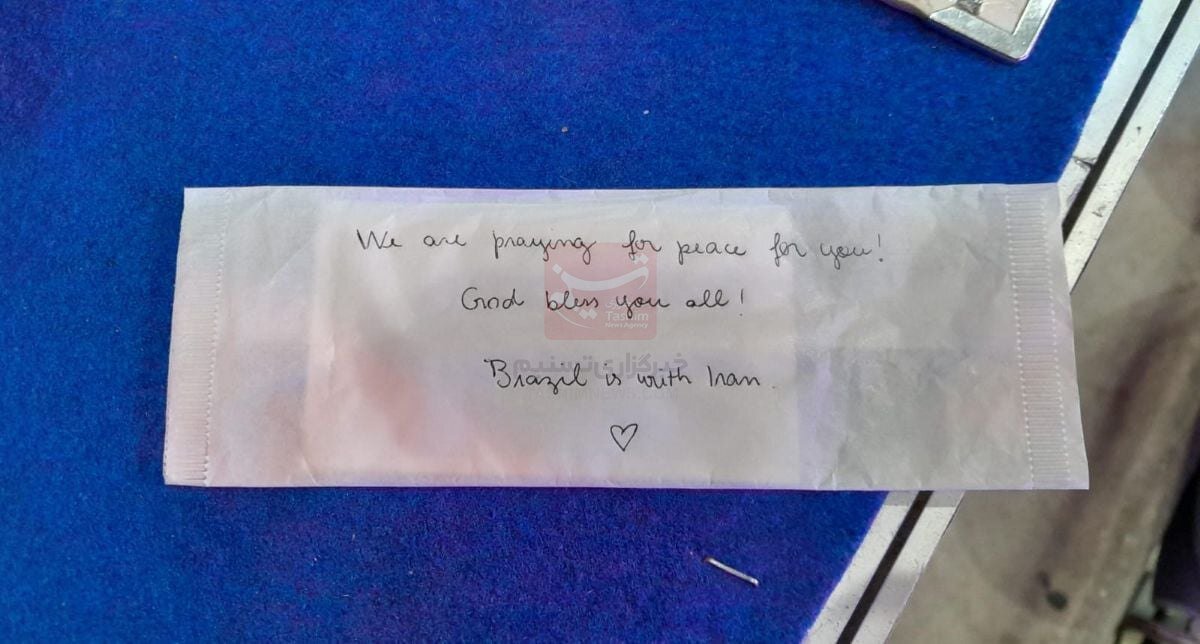 We are praying for peace for you!
God bless you all!
Brazil is with Iran.
♡
تسنیم
خبرگزاری
Tasnim
News Agency
خبرگزاری تسنیم